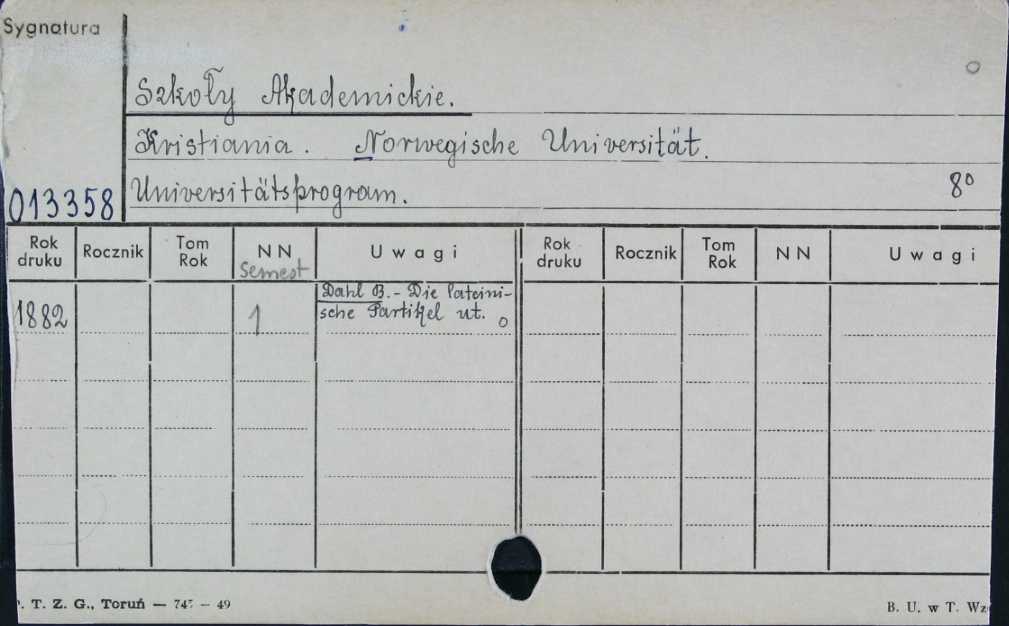 Sygnatura
Szkoły Akademickie.
Kristiania. Norwegische Universität.
013358 Universitätsprogram. 8º
Rok druku Rocznik Tom Rok NN Uwagi Rok druku Rocznik Tom Rok NN Uwagi
Semest
1882 1 Dahl B. - Die lateini-
sche Partikel ut. o
T. Z. G., Toruń — 747 — 49 B. U. w T. Wz